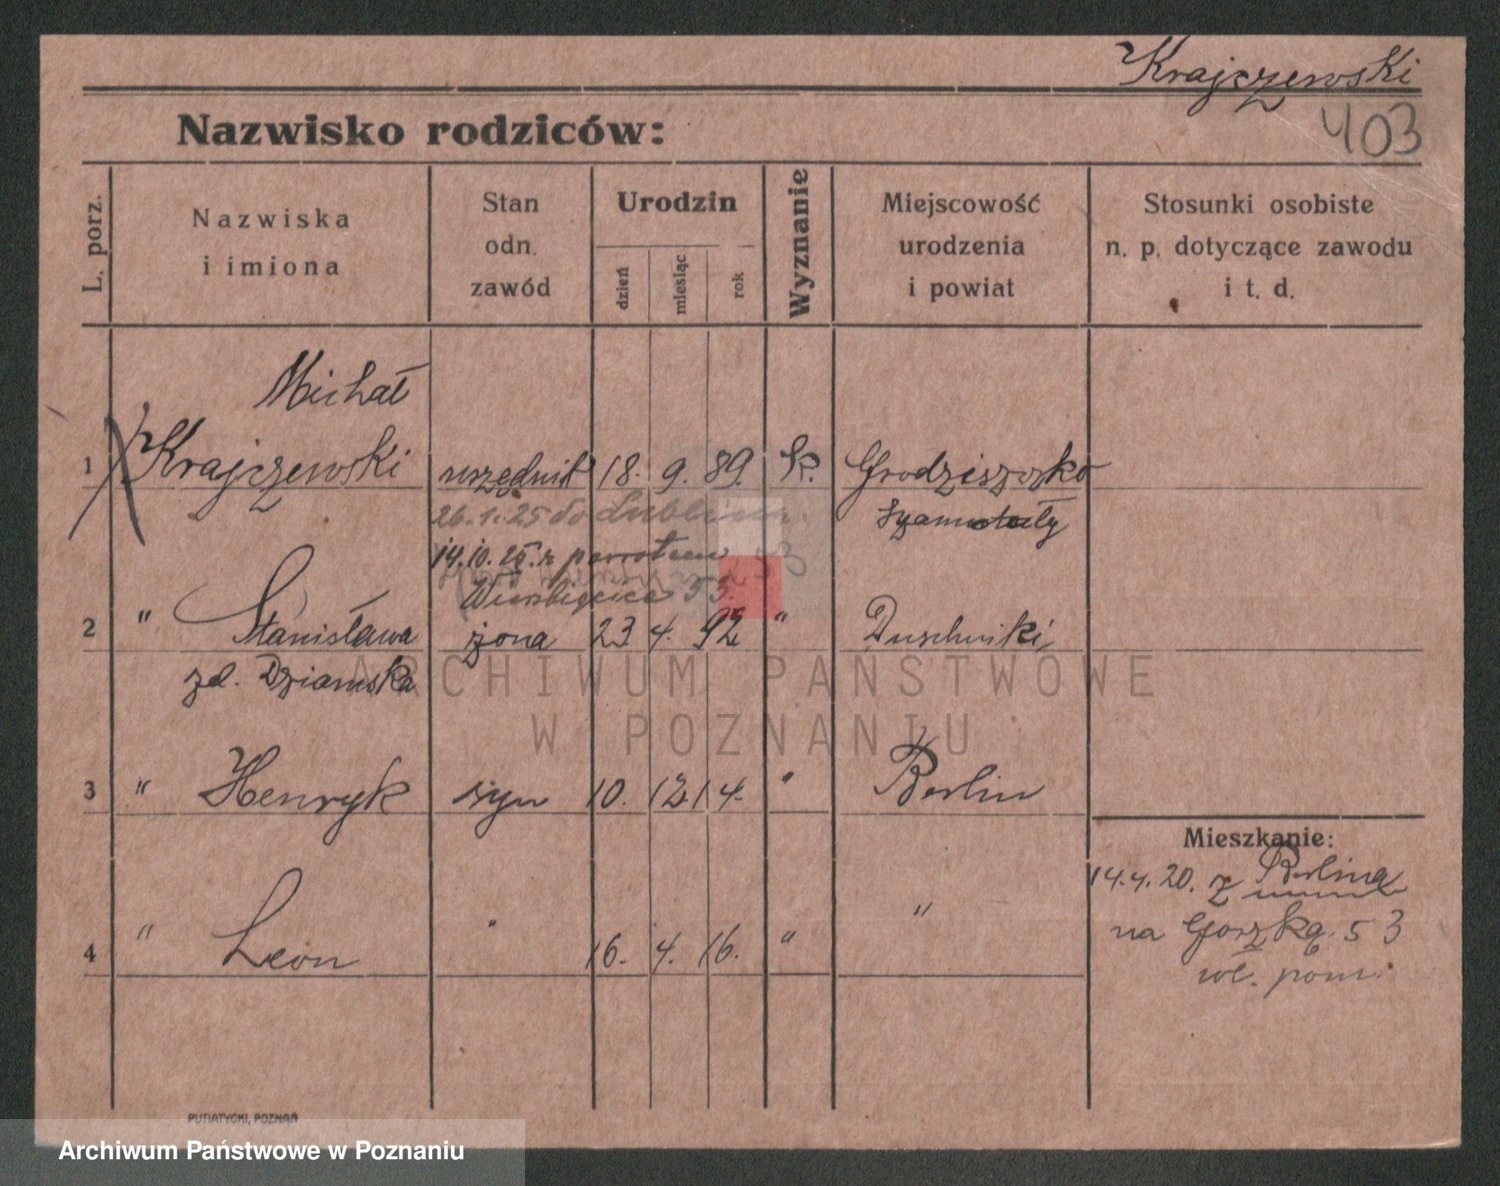 Krajczewski
403
Nazwisko rodziców:
L. porz.
Nazwiska
i imiona
Stan
odn.
zawód
Urodzin
dzień
miesiąc
rok
Wyznanie
Miejscowość
urodzenia
i powiat
Stosunki osobiste
n. p. dotyczące zawodu
i t. d.
Michał
1 Krajczewski urzędnik 18. 9. 89. k. Grodziszczko
26.1.25 do Lublina. Szamotuły
14.10.25. z powrotem
Wierzbięcice 53.
2 " Stanisława żona 23 4. 92 " Duschniki
zd. Dziamska
ARCHIWUM PAŃSTWOWE
W POZNANIU
3 " Henryk syn 10. 12. 14. " Berlin
Mieszkanie:
14.4.20. z Berlina
na Gorzką. 53
4 " Leon " 16. 4. 16. " "
wł. pom.
PUTIATYCKI, POZNAŃ
Archiwum Państwowe w Poznaniu